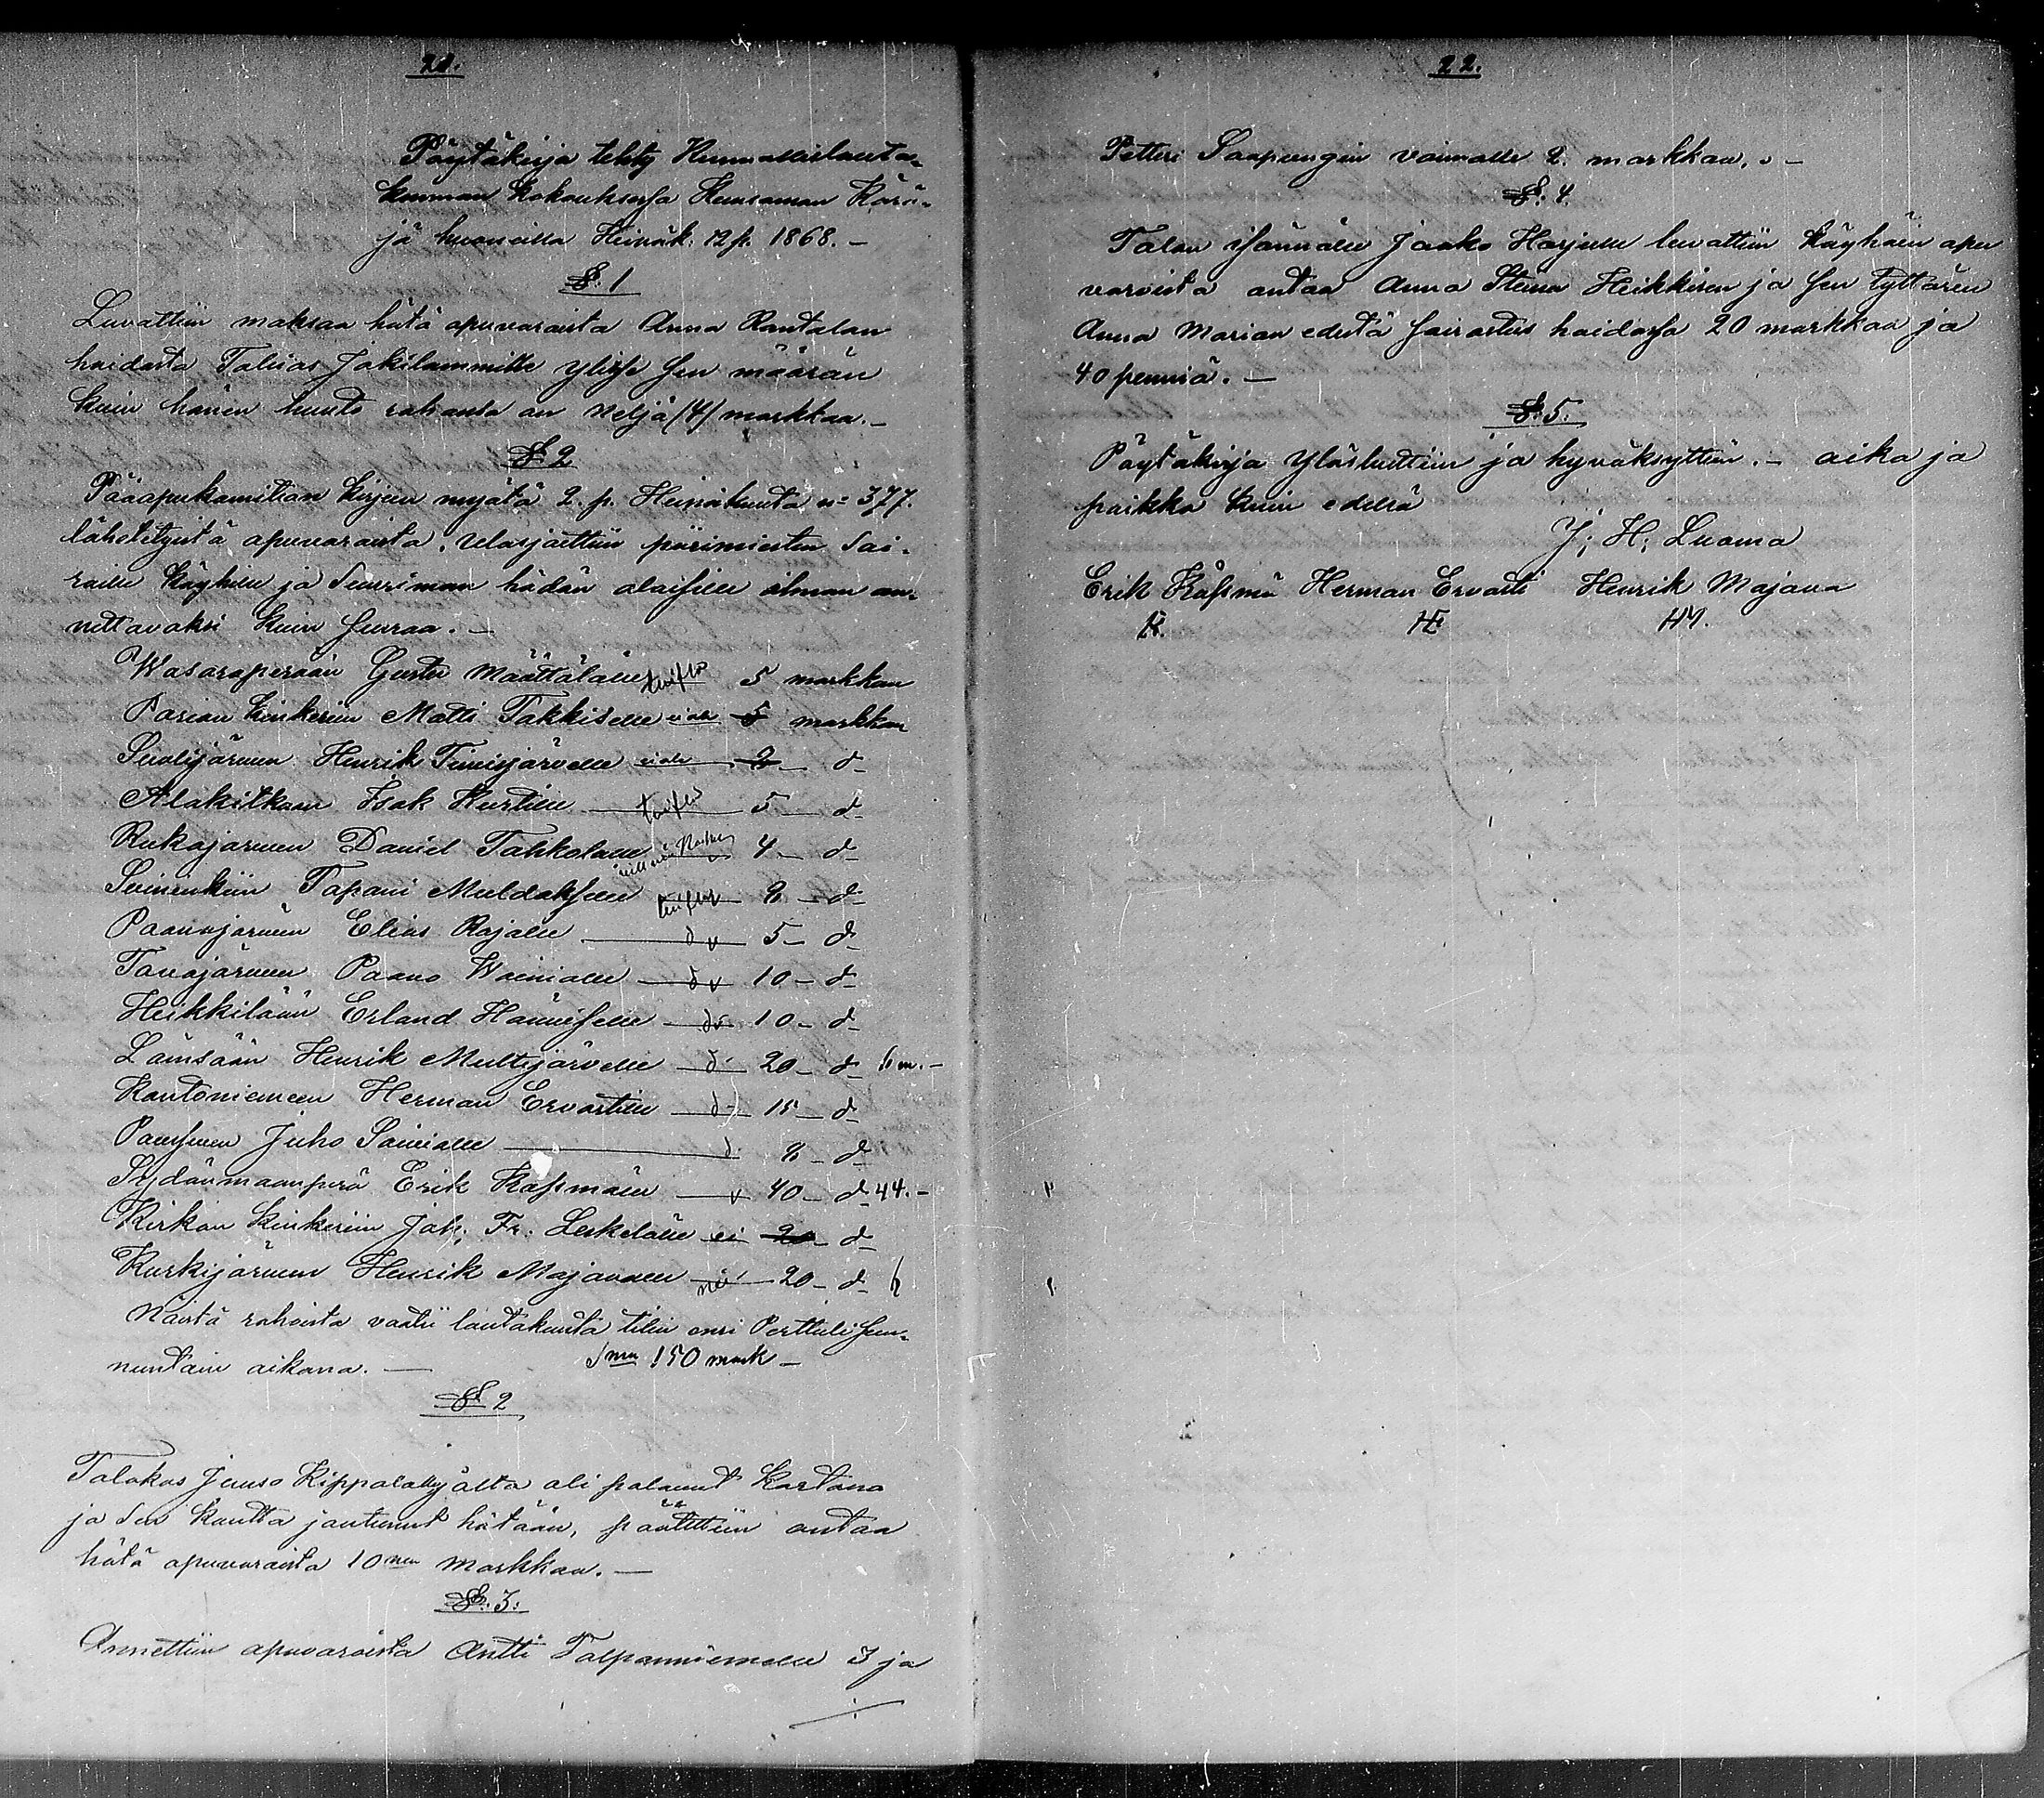 21.
Pöytäkirja tehty Kunnallislauta-
kunnan Kokouksessa Kuusamon Kärä-
jä huoneilla Heinäk: 12 p. 1868. -
§: 1
Luvattiin maksaa hätä apuvaroista Anna Rantalan
hoidosta Jokilammille ylitse sen määrän
kuin hänen huuto rahansa on Neljä (4) markkaa. -
§ 2
Pääapukomitean kirjein myötä 2. p. Heinäkuuta n= 377.
lähetetyistä apuvaroista, Ulosjaettiin piirimiesten Sai-
raille Köyhille ja Suurimman hädän alaisille ilman an-
nettavaksi kuin Seuraa. -
Wasaraperään Gustu Määttälälle 5 markkaa
Posion Kinkeriin Matti Takkiselle ei ole 5 markkaa
Suolijärveen Henrik Tiirisjärvelle ei ole 2 - d-
Alakitkaan Isak Kurtille 5 - d-
Rukajärveen Daniel Tahkolalle 4 - d-
Suininkiin Tapani Muldakselle 8 - d-
Paanajärveen Elias Rajalle d v 5 - d-
Tavajärveen Paavo Wainialle d v 10 - d-
Heikkilään Erland Hänniselle d v 10 - d-
Lämsään Henrik Multijärvelle d 20 - d- 6 m. -
Kantoniemeen Herman Ervastille d 15 - d-
Juho Sainialle d 8 - d-
Sydänmaanperä Erik Kåsmälle v 40 - d- 44. -
Kirkon kinkeriin Joh; Fr: Leskelälle ei 20 - d-
Kurkijärveen Henrik Majavalle 20 - d-
Näistä rahoista vaatii lautakunta tilin ensi Perttuli Sun-
nuntain aikana. - Sma 150 mark -
§ 2
Talokas Juuso ali palanut Kartano
ja Sen kautta joutunut hätään, päätettiin antaa
hätä apuvaroista 10nen markkaa. -
§: 3:
Annettiin apuvaroista Antti Talpanniemelle 3 ja
22.
Petteri Saapungin vaimolle 2. markkaa. -
§: 4.
Talon isännälle Jaako Harjulle luvattiin köyhäin apu
varoista antaa Anna Stiina Heikkisen ja Sen tyttären
Anna Marian edestä Sairastus hoidossa 20 markkaa ja
40 penniä. -
§: 5:
Pöytäkirja Ylösluettiin ja hyväksyttiin. - aika ja
paikka kuin edellä
J; H; Luoma
Erik Kåsmä Herman Ervasti Henrik Majava
EK. HE HM.